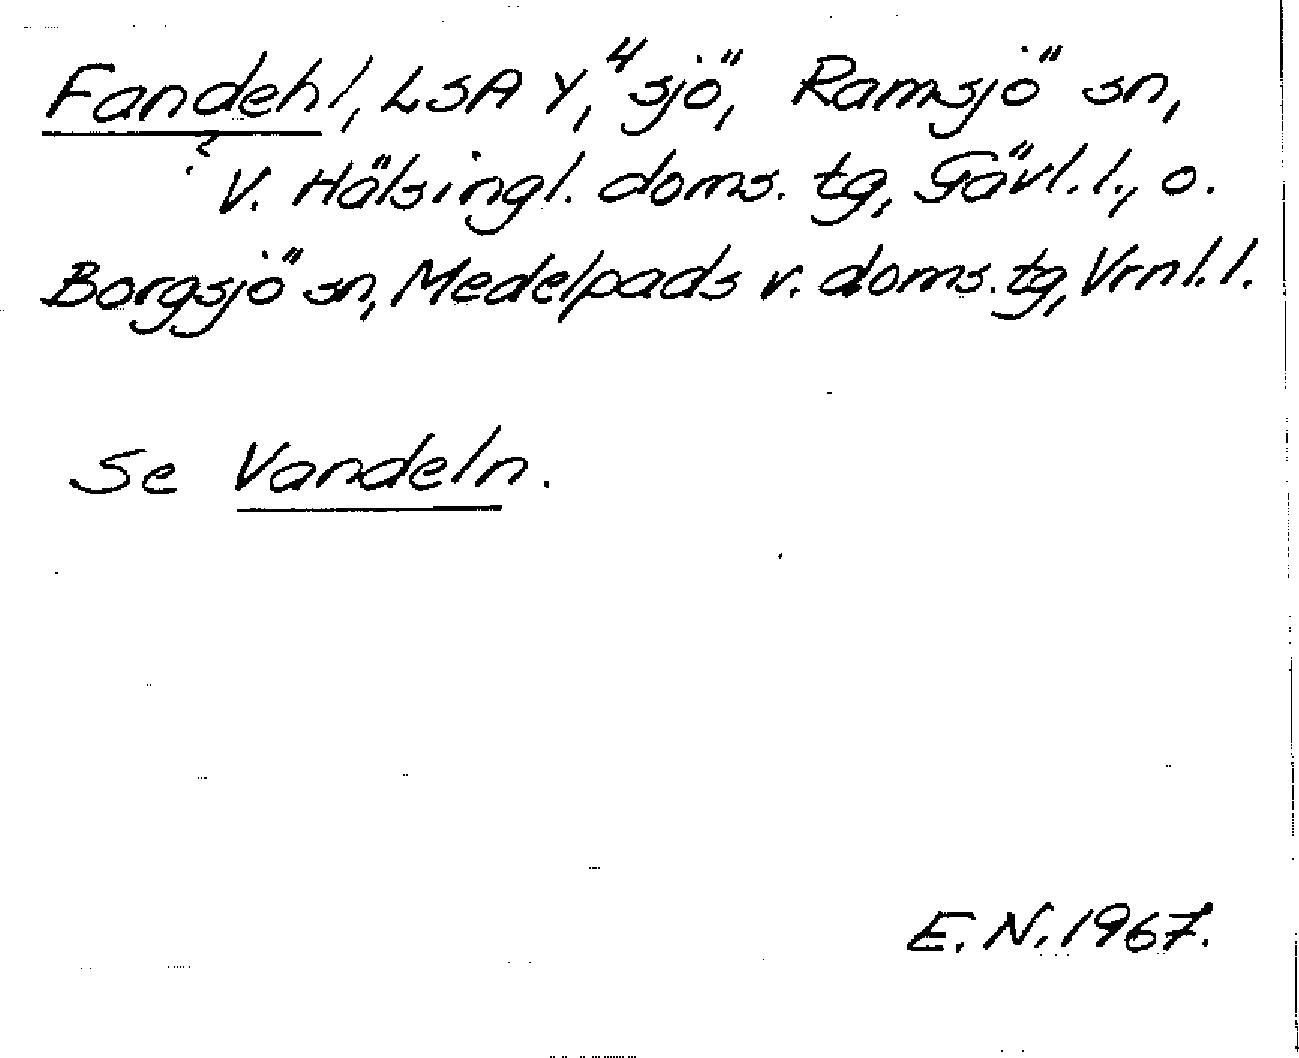 Fandehl, LSA Y, 4 "sjö", Ramsjö sn,
? V. Hälsingl. doms. tg, Gävl. l., o.
Borgsjö sn, Medelpads v. doms. tg, Vrnl. l.
Se Vandeln.
E. N. 1967.